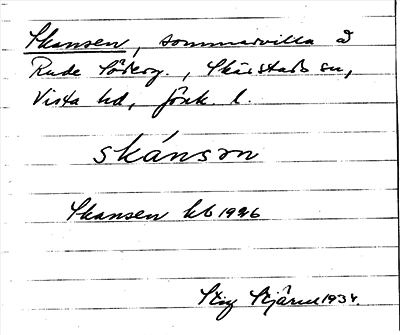 Skansen, sommarvilla å
Rude Söderg., Skärstads sn,
Vista hd, Jönk. l.
skánsɘn
Skansen kb 1926
Stig Stjärne 1934.